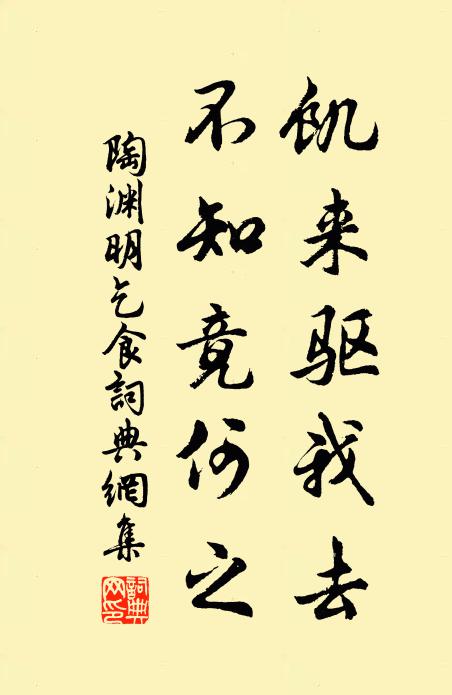 飢来驱我去
不知竟何之
陶渊明乞食詞典網集
詞典网印